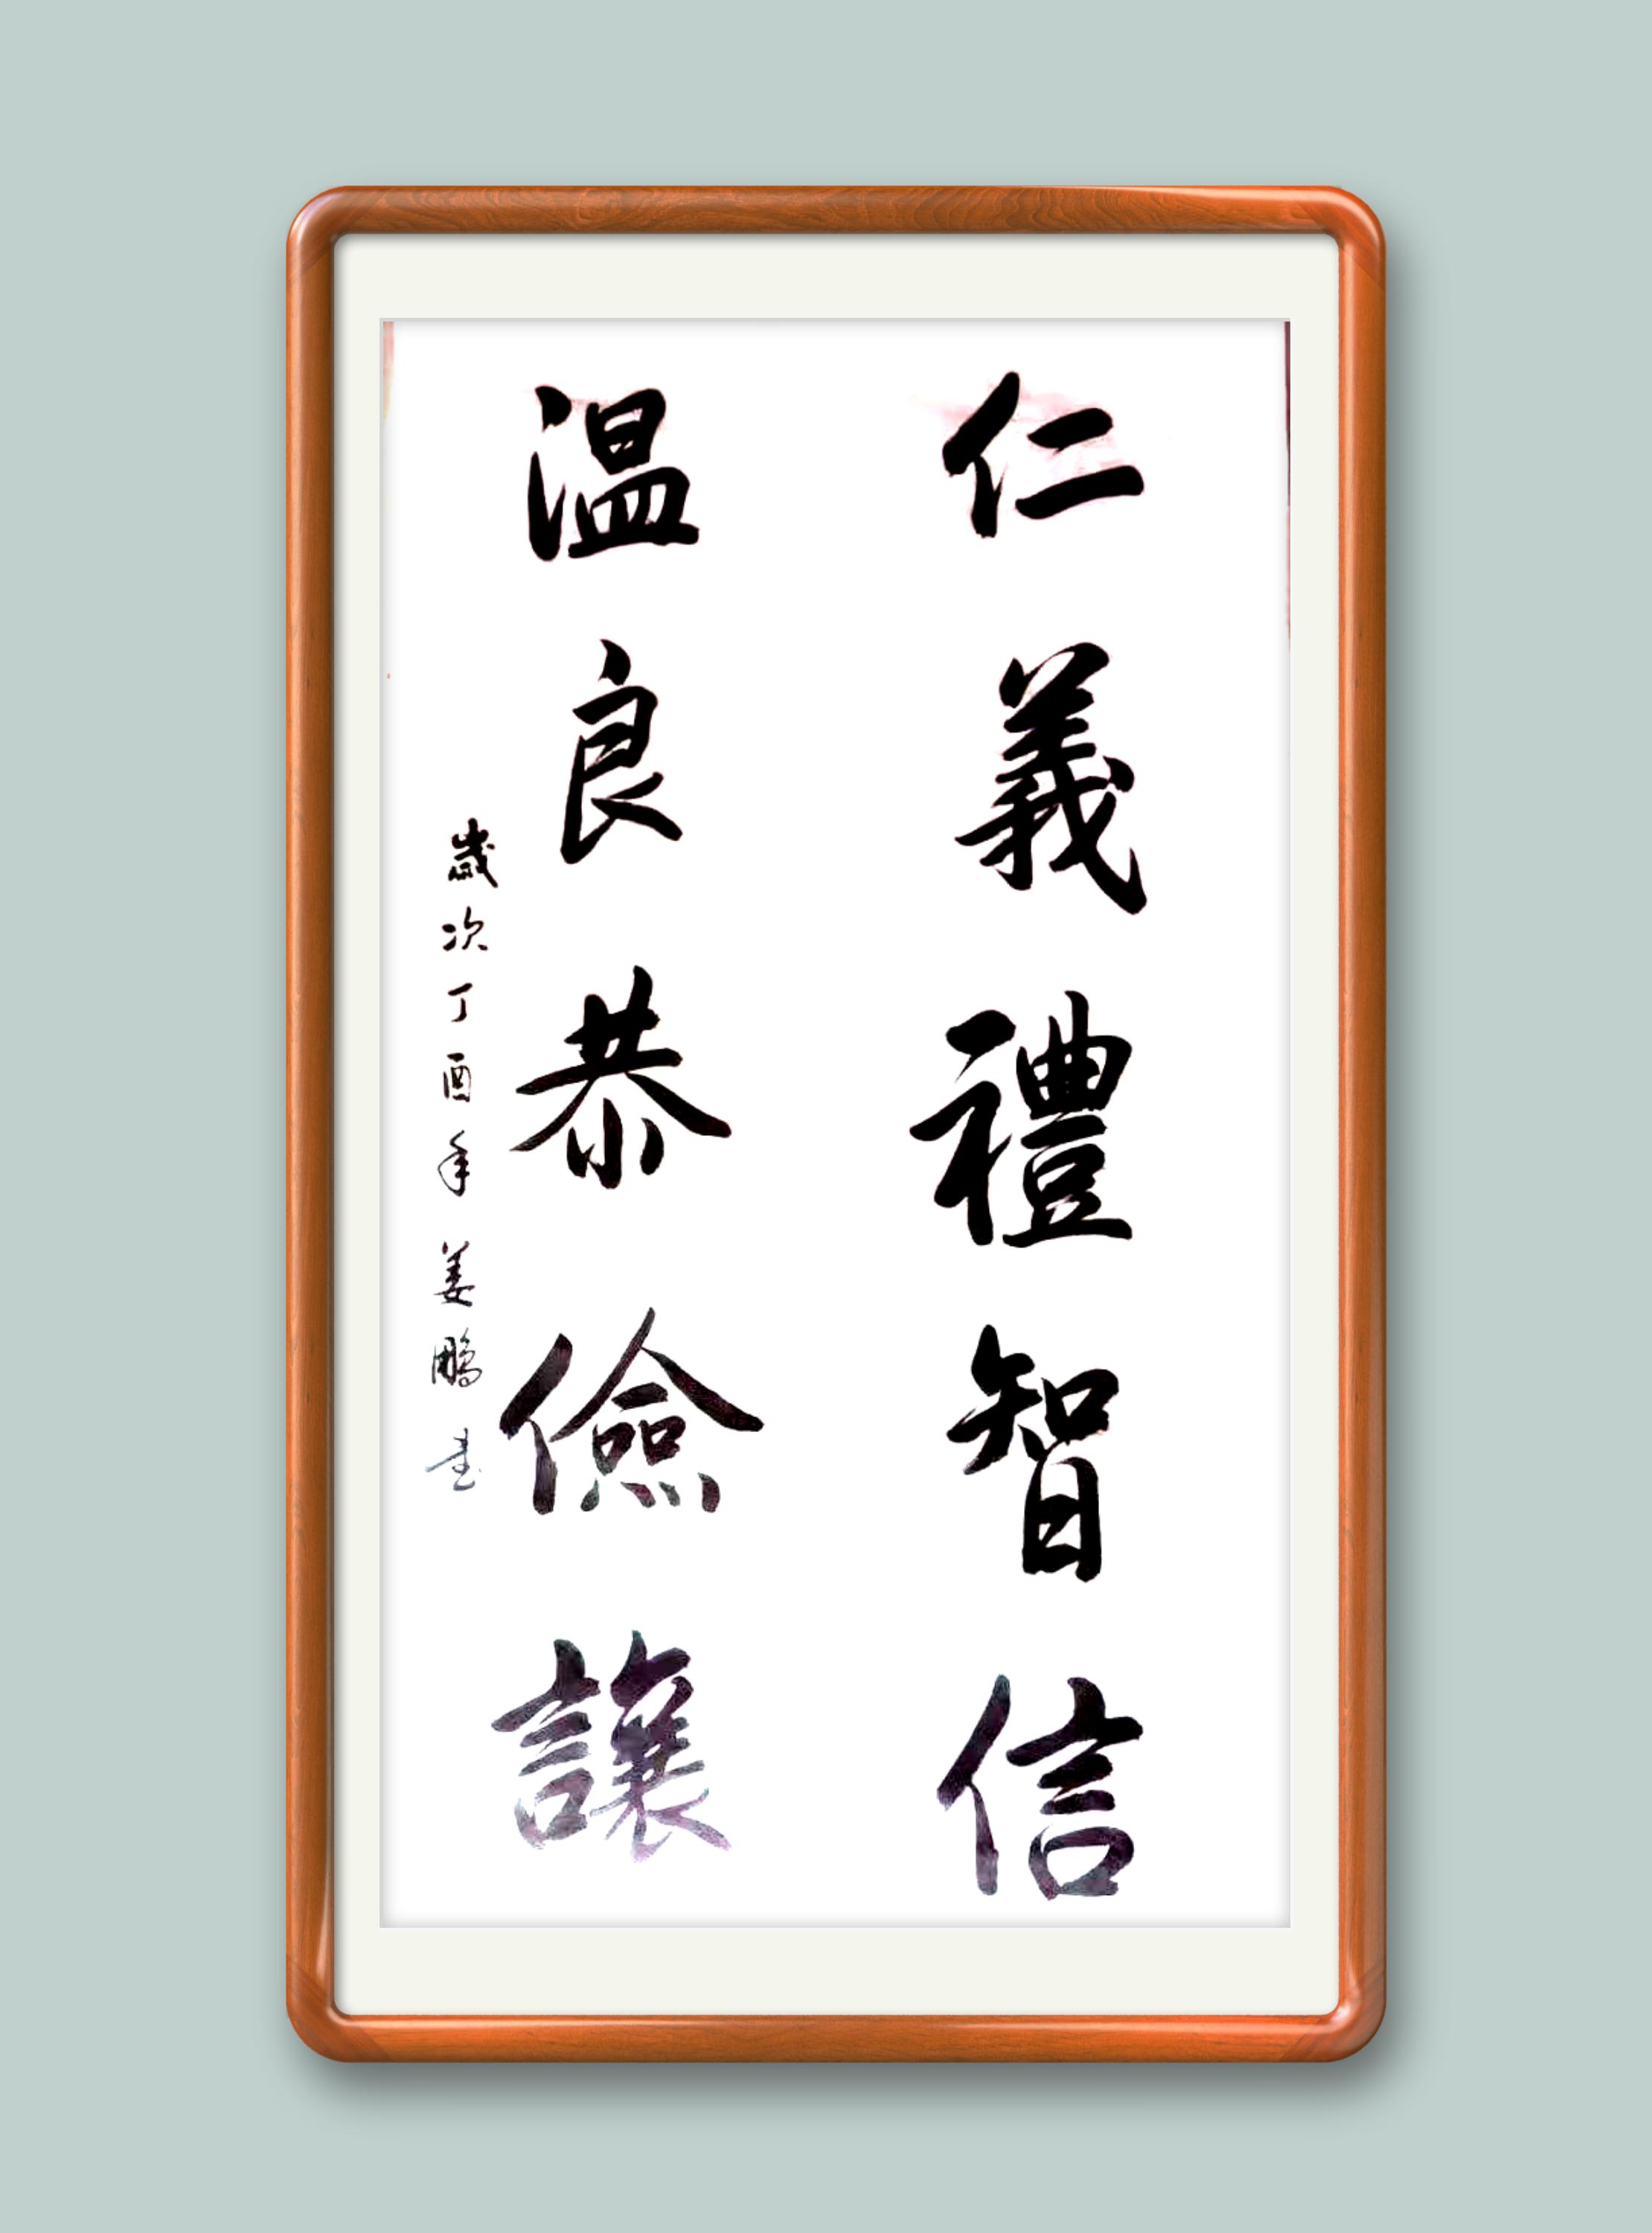 仁義禮智信
温良恭儉讓
歲次丁酉年姜鵬書